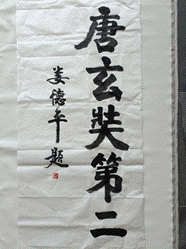 唐玄奘第二
姜德年题